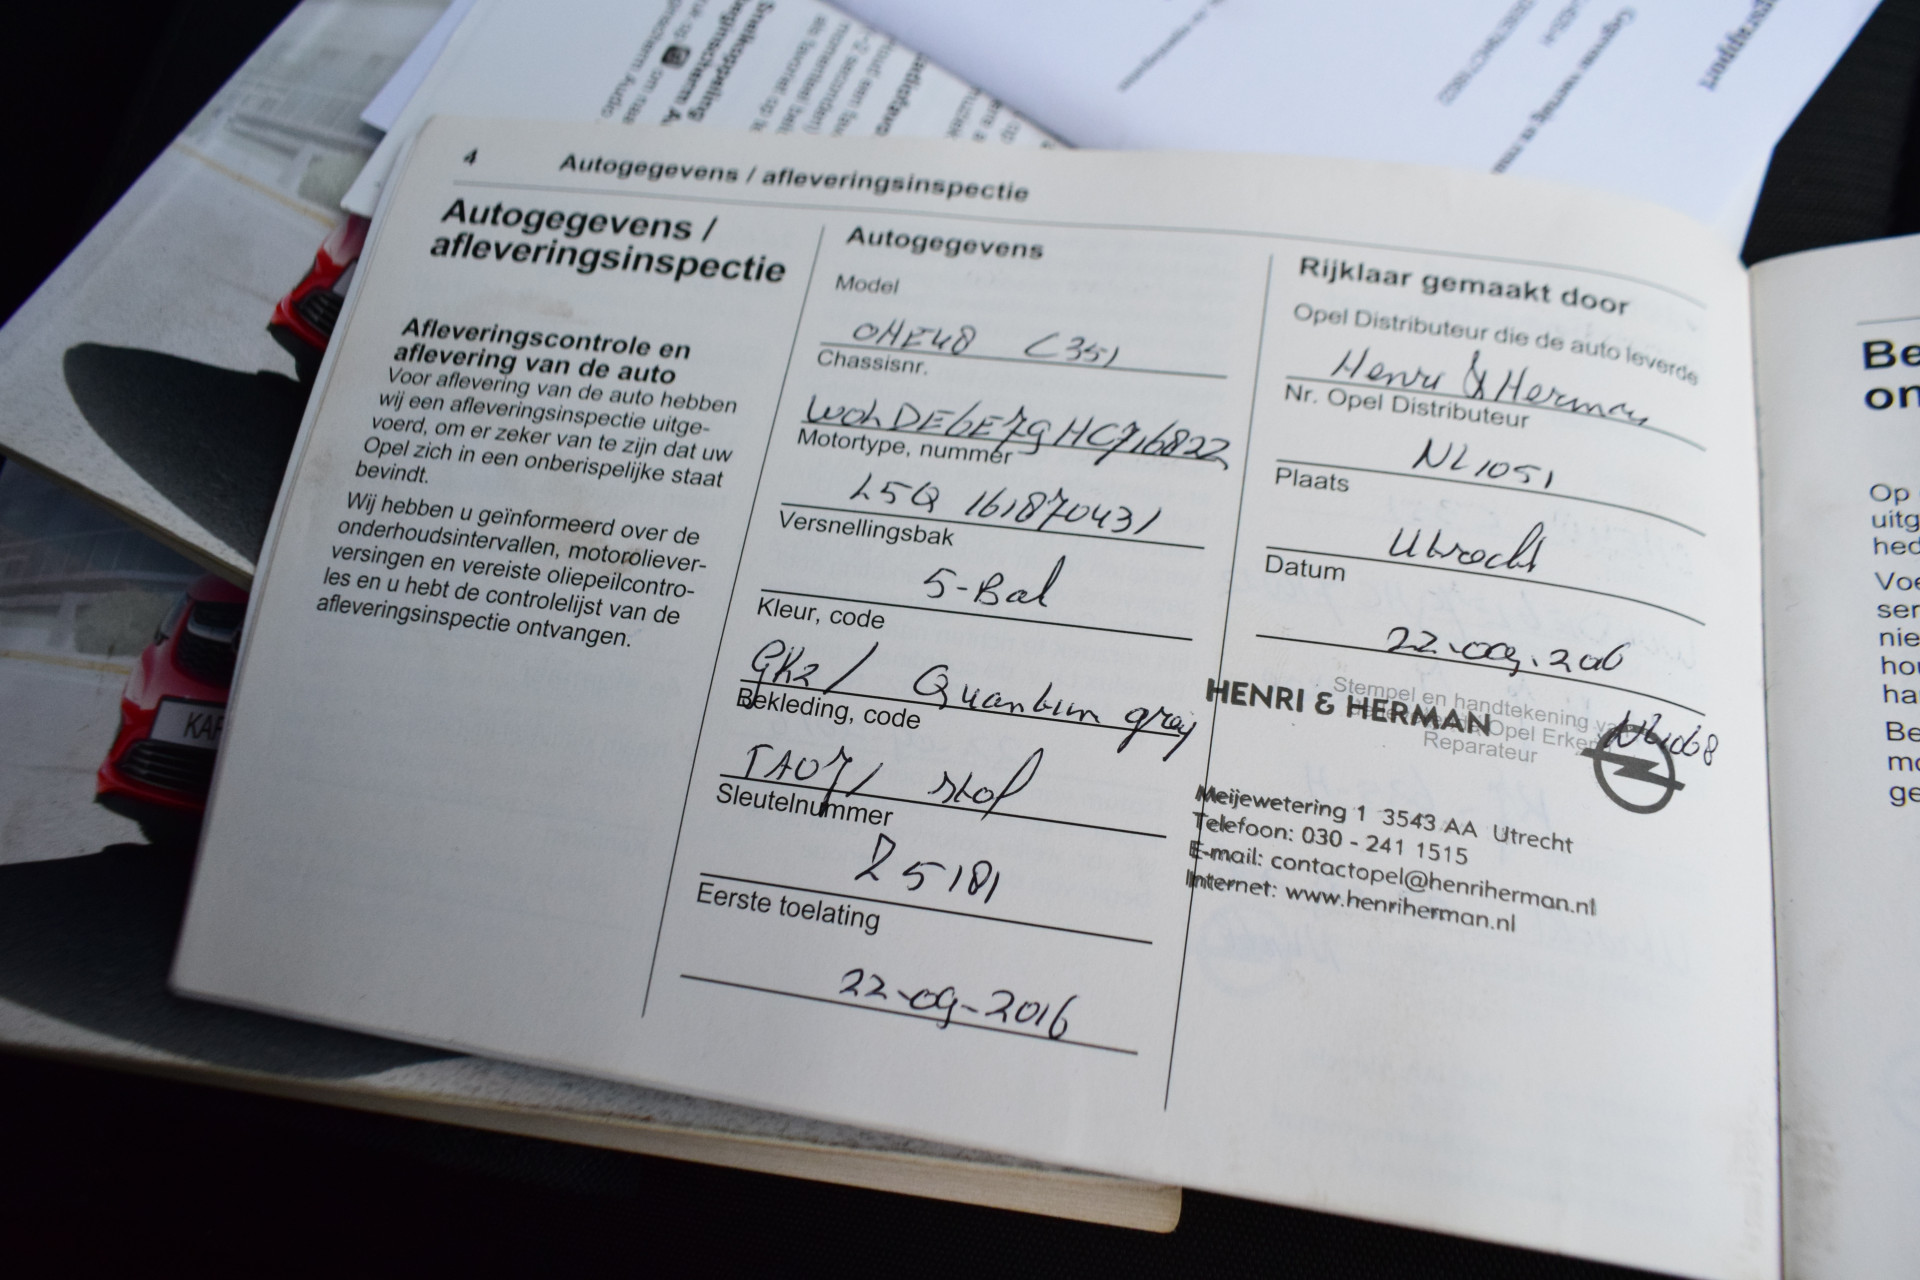 Snelkoppeling
beginscherm A
4 Autogegevens / afleveringsinspectie
Autogegevens /
afleveringsinspectie
Afleveringscontrole en
aflevering van de auto
Voor aflevering van de auto hebben
wij een afleveringsinspectie uitge-
voerd, om er zeker van te zijn dat uw
Opel zich in een onberispelijke staat
bevindt.
Wij hebben u geïnformeerd over de
onderhoudsintervallen, motoroliever-
versingen en vereiste oliepeilcontro-
les en u hebt de controlelijst van de
afleveringsinspectie ontvangen.
Autogegevens
Model
OHE48 C351
Chassisnr.
W0hDE6E79HC716822
Motortype, nummer
L5Q 161870431
Versnellingsbak
5-Bak
Kleur, code
GK2 / Quantum gray
Bekleding, code
TA07 / stof
Sleutelnummer
25181
Eerste toelating
22-09-2016
Rijklaar gemaakt door
Opel Distributeur die de auto leverde
Henri & Herman
Nr. Opel Distributeur
NL1051
Plaats
Utrecht
Datum
22.09.2016
Stempel en handtekening
Opel
Reparateur
HENRI & HERMAN
Meijewetering 1 3543 AA Utrecht
Telefoon: 030 - 241 1515
E-mail: contactopel@henriherman.nl
Internet: www.henriherman.nl
KAF
Be
on
Op
uitg
hed
Voe
ser
nie
hou
ha
Be
mo
ge